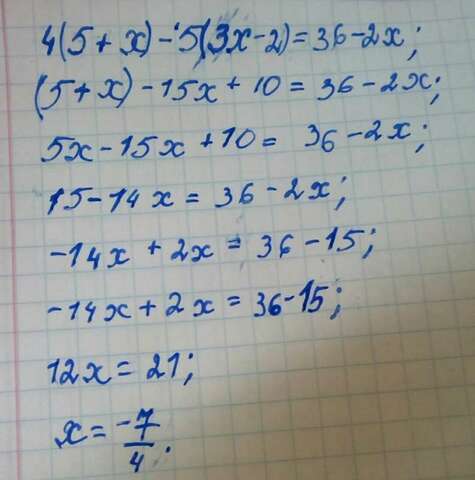 4(5+x)-5(3x-2)=36-2x;
(5+x)-15x+10=36-2x;
5x-15x+10= 36-2x;
15-14x=36-2x;
-14x+2x=36-15;
-14x+2x=36-15;
12x=21;
x=-7/4.